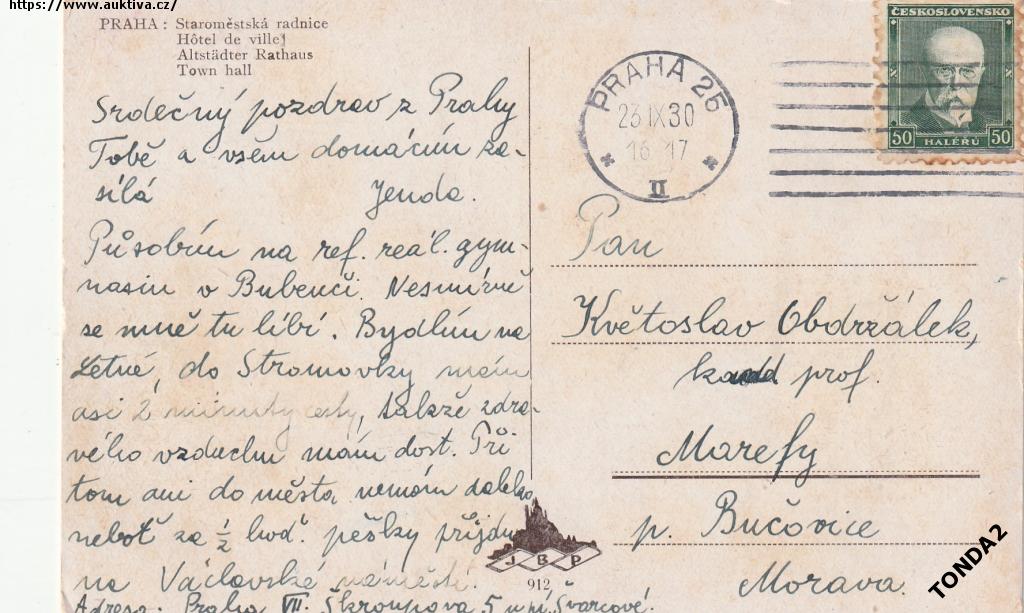 https://www.auktiva.cz/
PRAHA: Staroměstská radnice
Hôtel de ville
Altstädter Rathaus
Town hall
Srdečný pozdrav z Prahy
Tobě a všem domácím za-
sílá Jenda.
Působím na ref. reál. gym-
nasiu v Bubenči. Nesmírně
se mně tu líbí. Bydlím na
Letné, do Stromovky mám
asi 2 minuty cesty, takže zdra-
vého vzduchu mám dost. Při
tom ani do města nemám daleko
neboť za ½ hod. pěšky přijdu
na Václavské náměstí.
Adresa: Praha VII. Škroupova 5 u pí. Švarcové.
PRAHA 25
23 IX 30
16 17
II
ČESKOSLOVENSKO
50 50
HALÉRŮ
Pan
Květoslav Obdržálek,
prof.
Marefy
p. Bučovice
Morava.
JBP
912
TONDA2